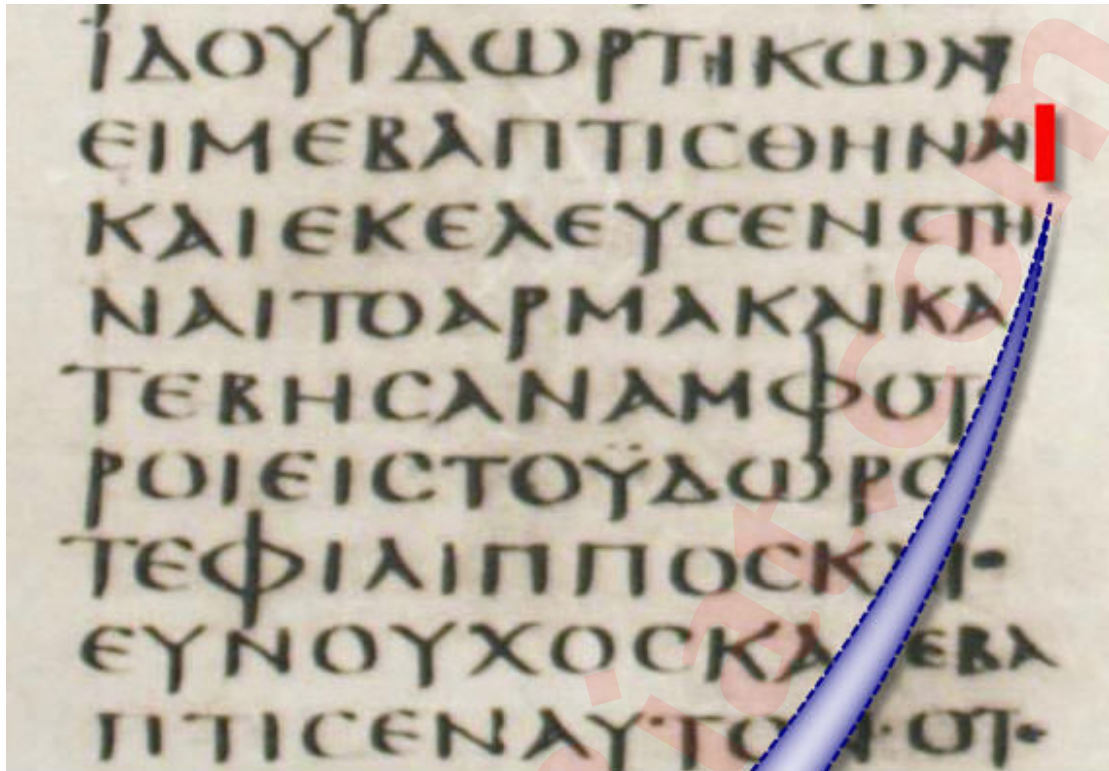 ΙΔΟΥΥΔΩΡΤΙΚΩΛΥ
ΕΙΜΕΒΑΠΤΙϹΘΗΝΑΙ
ΚΑΙΕΚΕΛΕΥϹΕΝϹΤΗ
ΝΑΙΤΟΑΡΜΑΚΑΙΚΑ
ΤΕΒΗϹΑΝΑΜΦΟΤ
ΡΟΙΕΙϹΤΟΫΔΩΡΟ
ΤΕΦΙΛΙΠΠΟϹΚΑΙ•
ΕΥΝΟΥΧΟϹΚΑ ΕΒΑ
ΠΤΙϹΕΝΑΥΤΟΝ·ΟΤ•